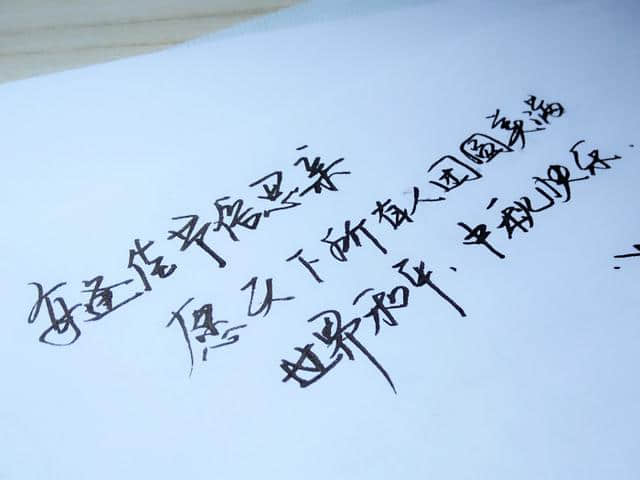 每逢佳节倍思亲
愿天下所有人团圆美满
世界和平.中秋快乐.